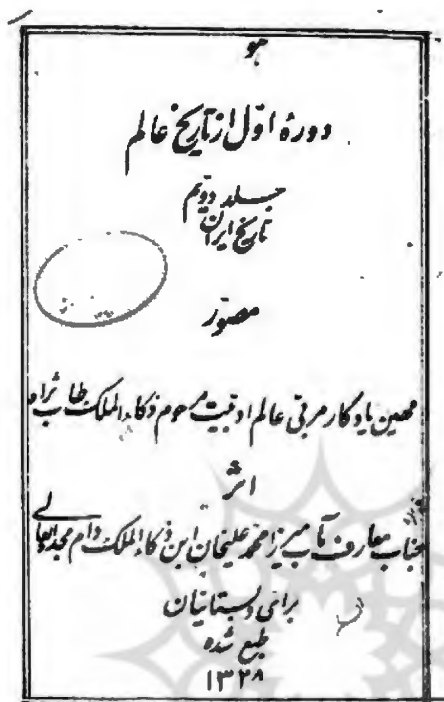 هو
دورهٔ اول از تاریخ عالم
جلد دویم
تاریخ ایران
مصور
مهین یادگار مربی عالم ادبیت مرحوم ذکاءالملک طاب ثراه
اثر
جناب معارف مآب میرزا محمد علیخان ابن ذکاءالملک دام مجده العالی
برای دبستانیان
طبع شده
۱۳۲۸